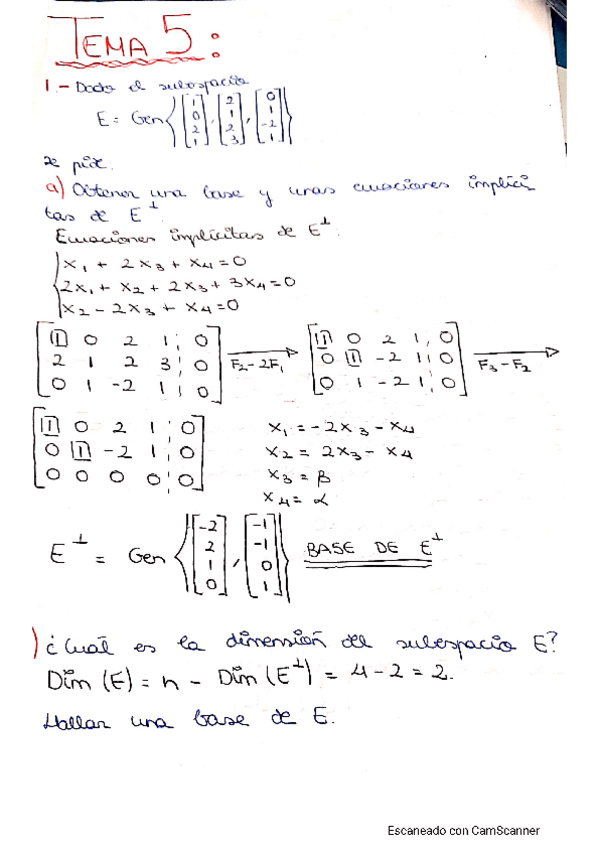 TEMA 5:
1.- Dado el subespacio
E = Gen{[1 0 2 1], [2 1 2 3], [0 1 -2 1]}
se pide.
a) Obtener una base y unas ecuaciones implíci
tas de E⊥.
Ecuaciones implícitas de E⊥:
x₁ + 2x₃ + x₄ = 0
2x₁ + x₂ + 2x₃ + 3x₄ = 0
x₂ - 2x₃ + x₄ = 0
[1 0 2 1 ¦ 0] [1 0 2 1 ¦ 0]
[2 1 2 3 ¦ 0] F₂-2F₁ [0 1 -2 1 ¦ 0] F₃-F₂
[0 1 -2 1 ¦ 0] [0 1 -2 1 ¦ 0]
[1 0 2 1 ¦ 0] x₁ = -2x₃ - x₄
[0 1 -2 1 ¦ 0] x₂ = 2x₃ - x₄
[0 0 0 0 ¦ 0] x₃ = β
x₄ = α
E⊥ = Gen{[-2 2 1 0], [-1 -1 0 1]} BASE DE E⊥
) ¿Cuál es la dimensión del subespacio E?
Dim (E) = n - Dim (E⊥) = 4 - 2 = 2.
Hallar una base de E.
Escaneado con CamScanner